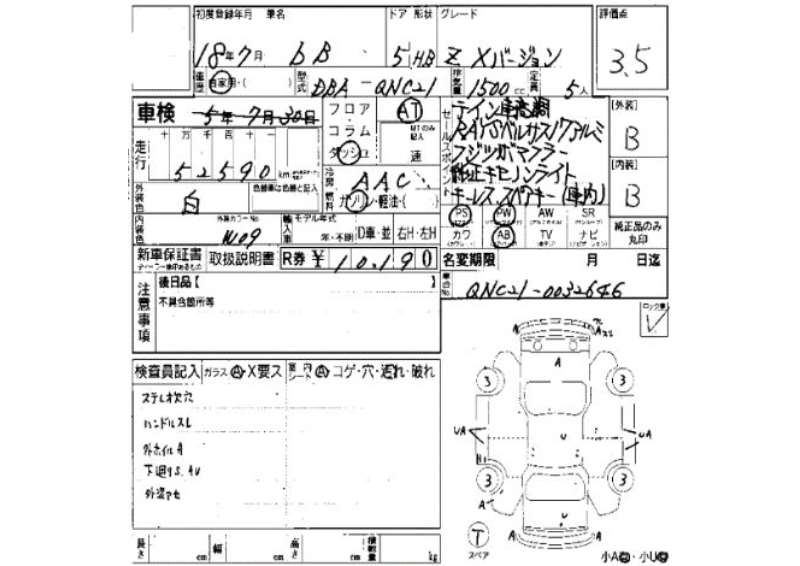 初度登録年月 車名 ドア 形状 グレード 評価点
18年7月 bB 5 H.B Z Xバージョン 3.5
車歴 自家用・( ) 型式 DBA-QNC21 排気量 1500cc 定員 5人
車検 5年7月30日 フロア AT セールスポイント テイン車高調 [外装]
コラム MTのみ記入 RAYSベルサス17アルミ B
走行 十 万 千 百 十 一 ダッシュ 速 フジツボマフラー
52590 km キセノンライト [内装]
冷房 AAC キーレス.スペアキー(車内) B
外装色 白 色替車は色替と記入 燃料 ガソリン・軽油・( )
PS PW AW SR
内装色 外装カラーNo. W09 輸入車 モデル年式 年・不明 D車・並 右H・左H カワ AB TV ナビ 純正品のみ丸印
新車保証書 取扱説明書 R券 ¥10,190 名変期限 月 日迄
車台No. QNC21-0032646
注意事項 後日品【 】
不具合箇所等
検査員記入 ガラス A・X要ス 室内シート A コゲ・穴・汚れ・破れ
ステレオ欠穴
ハンドルスレ
外ホイルA
下廻りS.AU
A A
A
3 3
U
UA UA
U
3 3
A
U
A A
T
スペア
長さ cm 幅 cm 高さ cm 積載量 kg
小A・小U